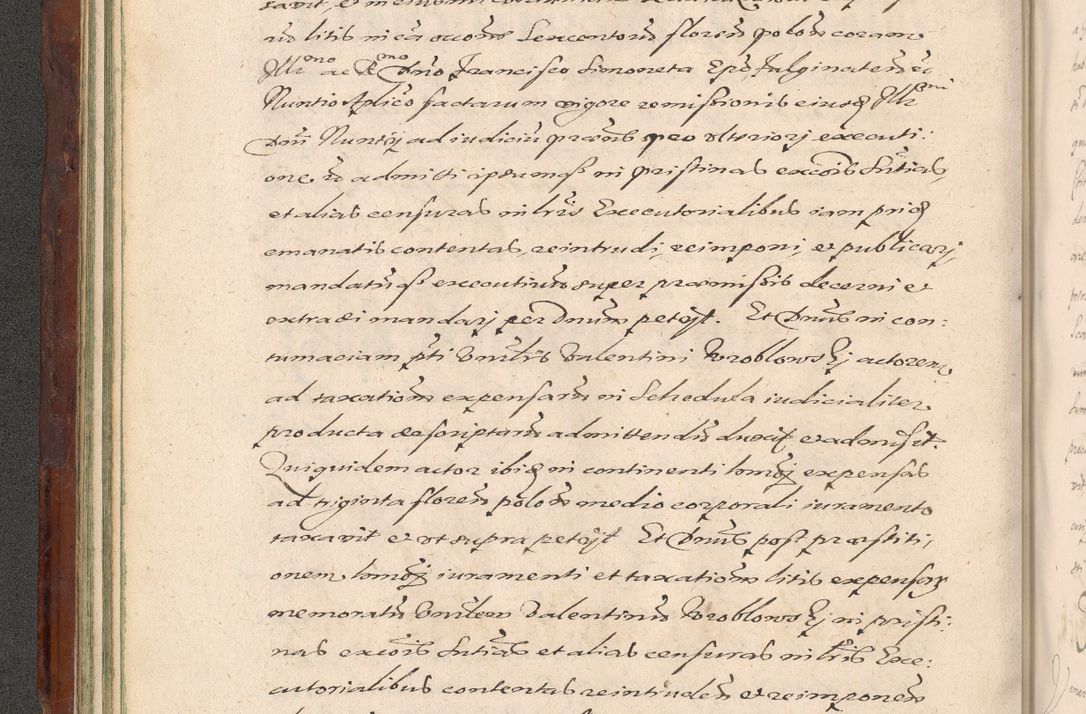 ad litis in ea occonẽ Sexcentorũ florenũ polonũ coram
Illmo ac Rmo Dno Francisco Simoneta Epõ Fulginateñ et
Nuntio Aplico factarum vigore remissionis eiusdẽ Illmi
Dñi Nuntij ad iudiciũ præsens pro ulteriorj executi:
one admitti ipsumq in pristinas excõis sñtias,
et alias censuras in lris Executorialibus iam prid
emanatis contentas, reintrudi, reimponi, et publicarj,
mandatũq executivũ super præmissis decerni et
extradi mandarj per Dnum petijt. Et Dnus in con:
tumaciam pti Valentini Wroblowskj actorem
ad taxationẽ expensarũ in Schedula iudicialiter
producta descriptarũ admittendũ duxit et admisit.
Quiquidem actor ibidẽ in continenti expensas
ad triginta florenũ polonũ medio corporali iuramento
taxavit et ut supra petijt Et Dnus post præstiti,
onem iuramenti et taxationẽ litis expensar
memoratũ Valentinũ Wroblowskj in pristi:
nas excõis sñtias et alias censuras in lris Exe:
cutorialibus contentas reintrudenũ et reimponenũ